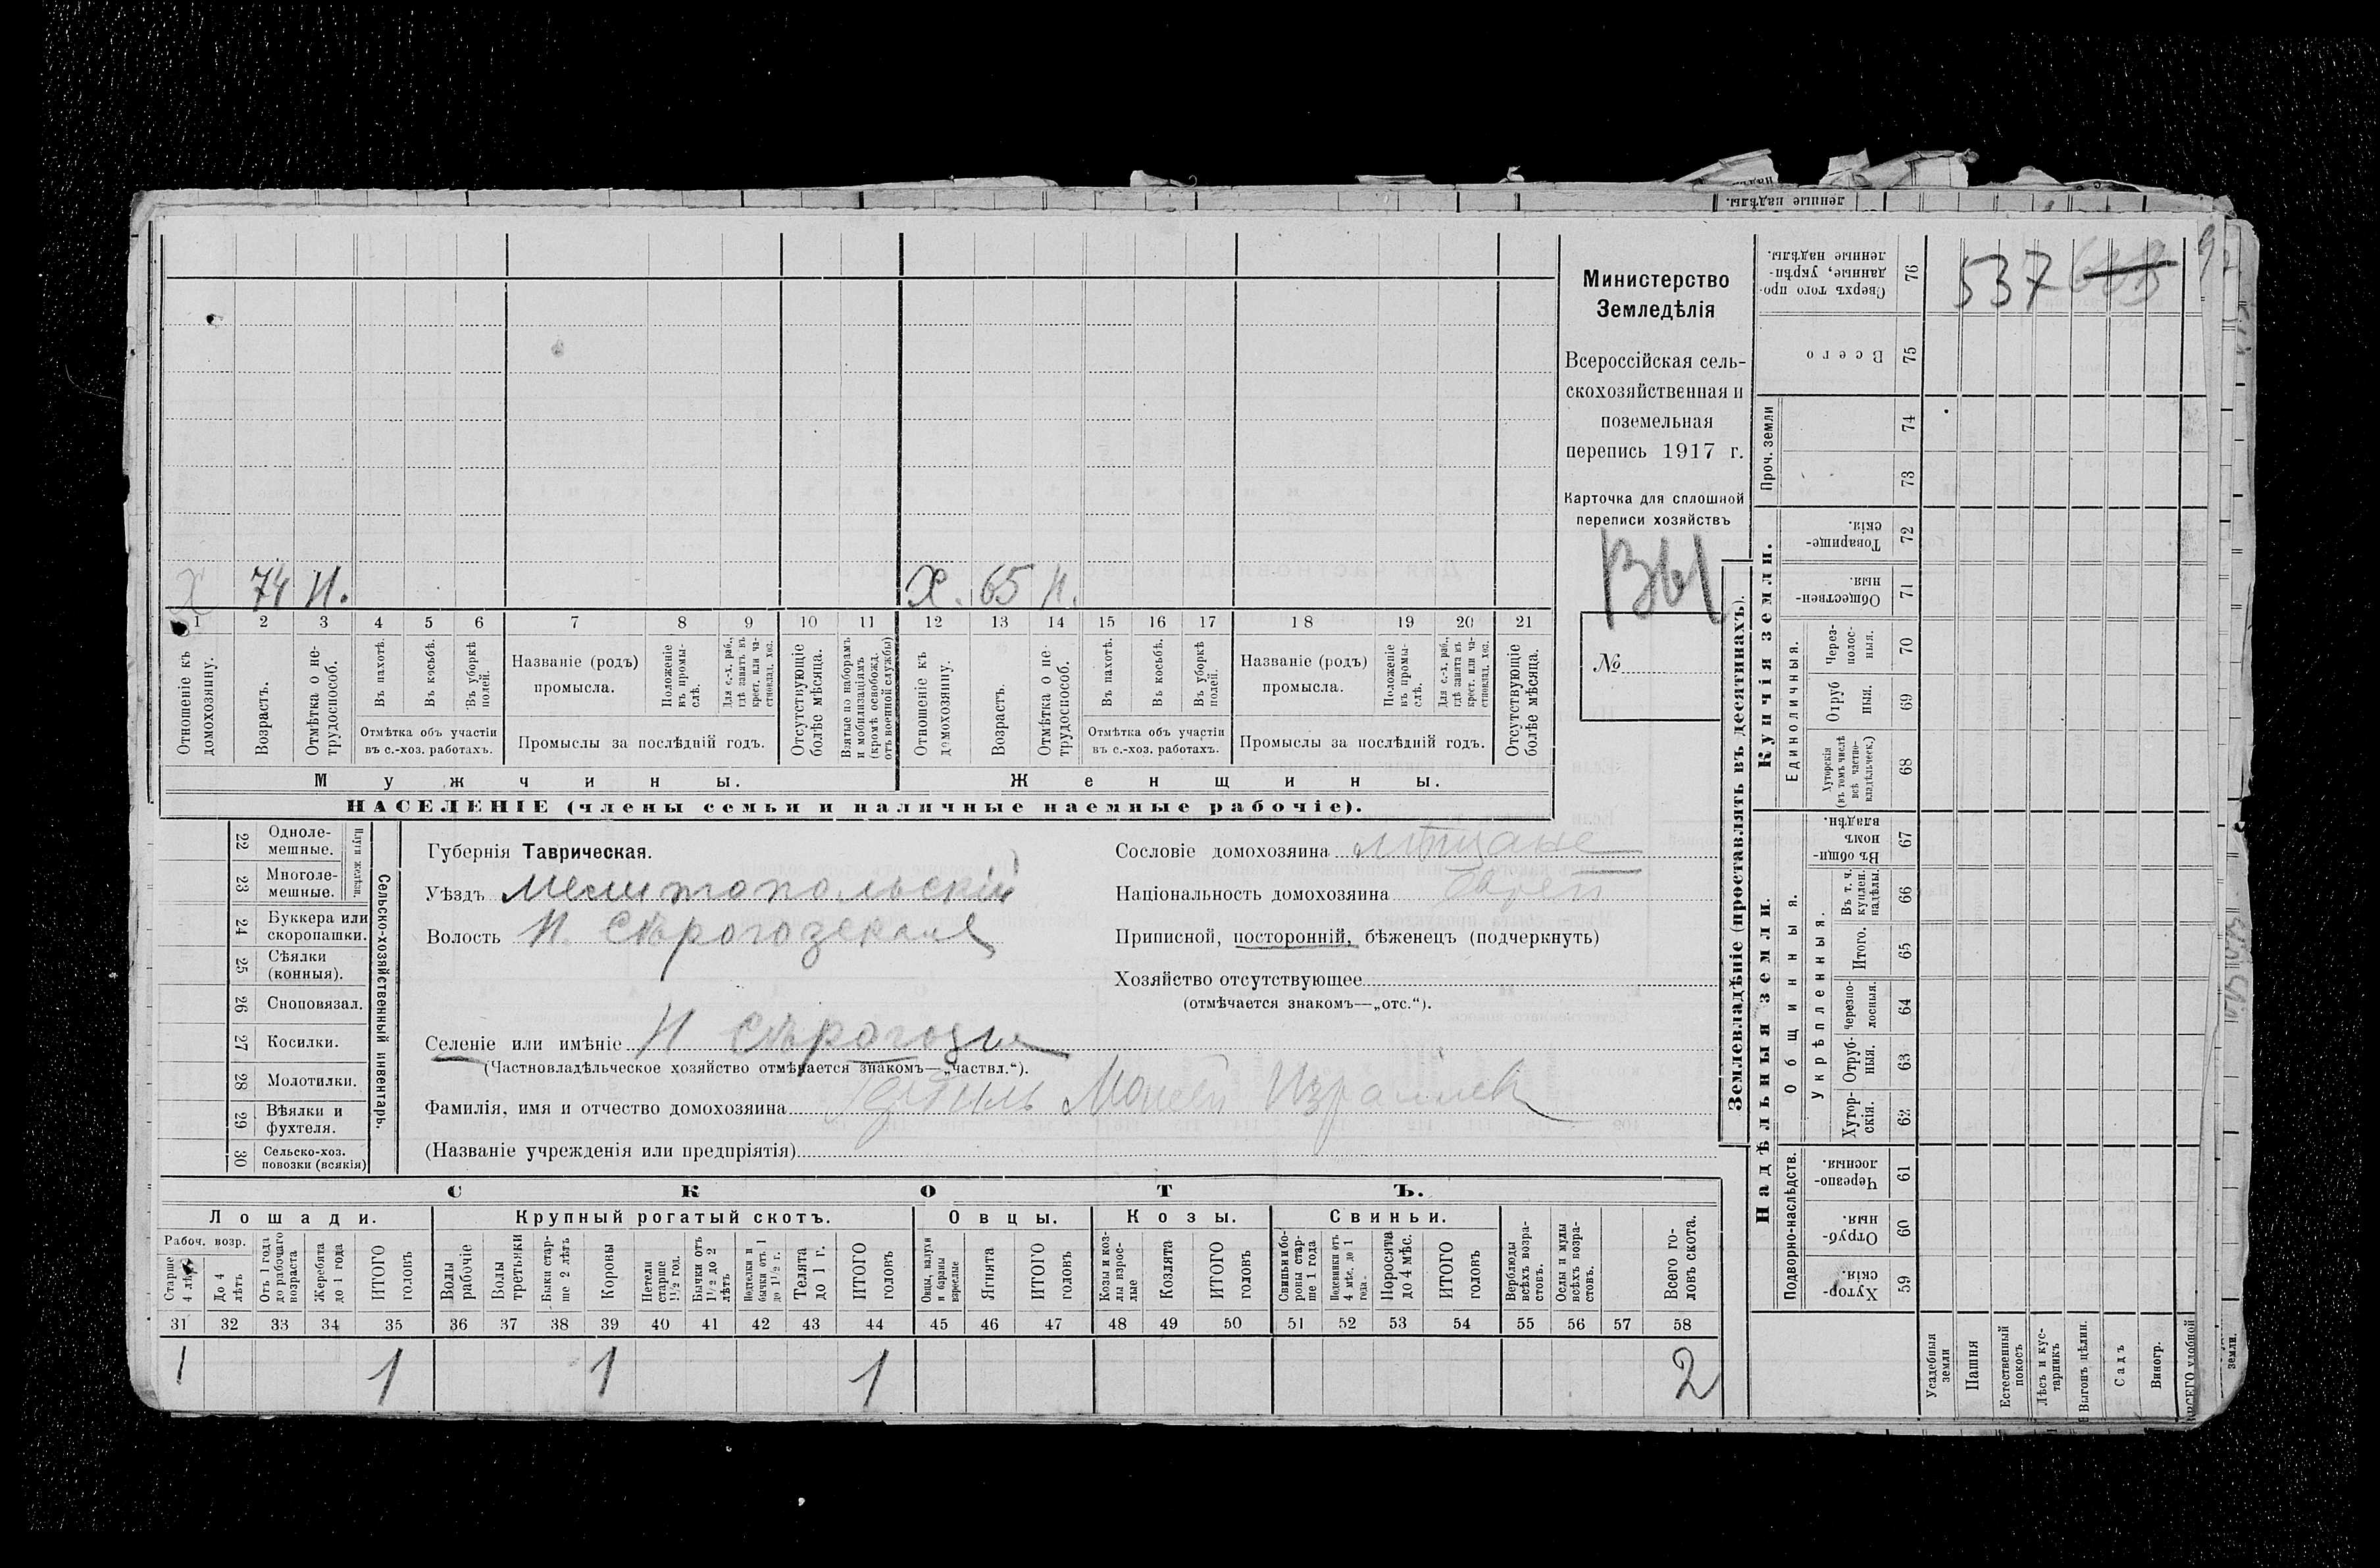 ленные надѣлы.
537
Х 74 Н. Х. 65 Н.
1 2 3 4 5 6 7 8 9 10 11 12 13 14 15 16 17 18 19 20 21
Отношеніе къ домохозяину.
Возрастъ.
Отмѣтка о не-
трудоспособ.
Въ пахотѣ.
Въ косьбѣ.
Въ уборкѣ полей.
Отмѣтка объ участіи
въ с.-хоз. работахъ.
Названіе (родъ)
промысла.
Положеніе
въ промы-
слѣ.
Для с.-х. раб.,
гдѣ занятъ въ
крест. или ча-
стновлад. хоз.
Промыслы за послѣдній годъ.
Отсутствующіе
болѣе мѣсяца.
Взятые по наборамъ
и мобилизаціямъ
(кромѣ освобожд.
отъ военной службы)
Отношеніе къ
домохозяину.
Возрастъ.
Отмѣтка о не-
трудоспособ.
Въ пахотѣ.
Въ косьбѣ.
Въ уборкѣ
полей.
Отмѣтка объ участіи
въ с.-хоз. работахъ.
Названіе (родъ)
промысла.
Положеніе
въ промы-
слѣ.
Для с.-х. раб.,
гдѣ занята въ
крест. или ча-
стновлад. хоз.
Промыслы за послѣдній годъ.
Отсутствующіе
болѣе мѣсяца.
Мужчины. Женщины.
НАСЕЛЕНІЕ (члены семьи и наличные наемные рабочіе).
Министерство
Земледѣлія
Всероссійская сель-
скохозяйственная и
поземельная
перепись 1917 г.
Карточка для сплошной
переписи хозяйствъ
Вы
№
Сельско-хозяйственный инвентарь.
Плуги желѣзн.
22 Одноле-
мешные.
23 Многоле-
мешные.
24 Буккера или
скоропашки.
25 Сѣялки
(конныя).
26 Сноповязал.
27 Косилки.
28 Молотилки.
29 Вѣялки и
фухтеля.
30 Сельско-хоз.
повозки (всякія)
Губернія Таврическая.
Уѣздъ Мелитопольскій
Волость Н. Сѣрогозская
Селеніе или имѣніе Н Сѣрогозы
(Частновладѣльческое хозяйство отмѣчается знакомъ—„частвл.“).
Фамилія, имя и отчество домохозяина Моисей Израилев
(Названіе учрежденія или предпріятія)
Сословіе домохозяина мѣщане
Національность домохозяина еврей
Приписной, посторонній, бѣженецъ (подчеркнуть)
Хозяйство отсутствующее
(отмѣчается знакомъ—„отс.“).
СКОТЪ.
Лошади. Крупный рогатый скотъ. Овцы. Козы. Свиньи.
Рабоч. возр.
Старше
4 лѣтъ
До 4
лѣтъ
Отъ 1 года
до рабочаго
возраста
Жеребята
до 1 года
ИТОГО
головъ
Волы
рабочіе
Волы
третьячки
Быки стар-
ше 2 лѣтъ
Коровы
Нетели
старше
1½ год.
Бычки отъ
1½ до 2
лѣтъ
Подтелки и
бычки отъ 1
до 1½ г.
Телята
до 1 г.
ИТОГО
головъ
Овцы, валухи
и бараны
взрослые
Ягнята
ИТОГО
головъ
Козы и коз-
лы взрос-
лые
Козлята
ИТОГО
головъ
Свиньи и бо-
ровы стар-
ше 1 года
Подсвинки отъ
4 мѣс. до 1
года.
Поросята
до 4 мѣс.
ИТОГО
головъ
Верблюды
всѣхъ возра-
стовъ.
Ослы и мулы
всѣхъ возра-
стовъ.
Всего го-
ловъ скота.
31 32 33 34 35 36 37 38 39 40 41 42 43 44 45 46 47 48 49 50 51 52 53 54 55 56 57 58
1 1 1 1 2
Землевладѣніе (проставлять въ десятинахъ).
Купчія земли.
Надѣльныя земли.
Сверхъ того про-
данные, укрѣп-
ленные надѣлы.
76
Всего
75
Проч. земли
74
73
Товарище-
скія.
72
Обществен-
ныя.
71
Единоличныя.
Через-
полос-
ныя.
70
Отруб
ныя.
69
Хуторскія
(въ томъ числѣ
всѣ частно-
владѣльческ.)
68
Общинныя.
Въ общи-
номъ
владѣн.
67
Укрѣпленныя.
Въ т. ч.
куплен.
надѣлы.
66
Итого.
65
Черезпо-
лосныя.
64
Отруб-
ныя.
63
Хутор-
скія.
62
Подворно-наслѣдств.
Черезпо-
лосныя.
61
Отруб-
ныя.
60
Хутор-
скія.
59
Усадебныя
земли
Пашня
Естественный
покосъ
Лѣсъ и кус-
тарникъ
Выгонъ цѣлин.
Садъ
Виногр.
ВСЕГО удобной
земли.